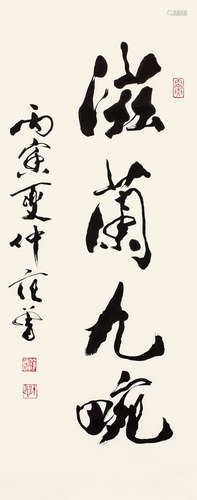 滋蘭九畹
丙寅夏仲范曾